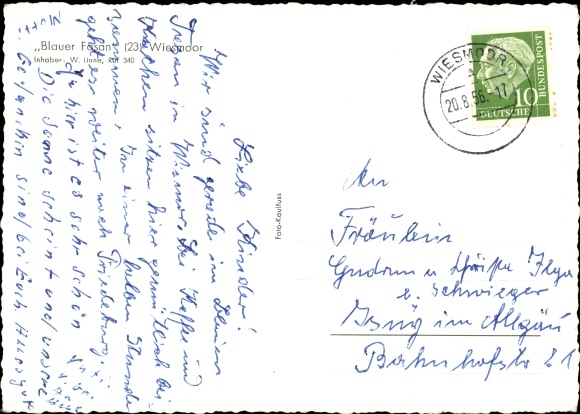 „Blauer Fasan" (23) Wiesmoor
Inhaber: W. Linna, Ruf 340
Liebe Kinder!
Wir sind gerade im Blauen
Fasan in Wiesmoor. Bei Kaffee und
Kuchen sitzen hier gemütlich bei
sammen. In einer halben Stunde
geht es weiter nach Friedeburg.
Ja hier ist es sehr schön
Die Sonne scheint und unsere
Gedanken sind bei Euch Alles gute
Foto-Kaufluss
WIESMOOR
20.8.56.-17
10
DEUTSCHE
BUNDESPOST
An
Fräulein
Gudrun u Ilga
Schwieger
Isny im Allgäu
Bahnhofstr 21